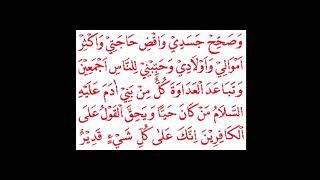 وَصَحِّحْ جَسَدِيْ وَاقْضِ حَاجَتِيْ وَاَكْثِرْ
اَمْوَالِيْ وَاَوْلَادِيْ وَحَبِّبْنِيْ لِلنَّاسِ اَجْمَعِيْنَ
وَتَبَاعَدَ الْعَدَاوَةَ كُلَّ مِنْ بَنِيْ اٰدَمَ عَلَيْهِ
السَّلَامُ مَنْ كَانَ حَيًّا وَيَحِقَّ الْقَوْلُ عَلَى
الْكَافِرِيْنَ اِنَّكَ عَلٰى كُلِّ شَيْءٍ قَدِيْرٌ